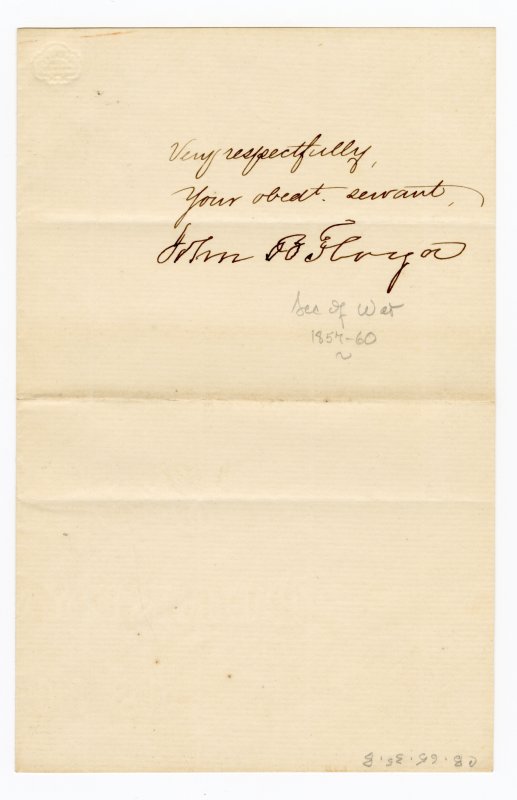 Very respectfully,
Your obedt. servant,
John B Floyd
Sec of War
1857-60